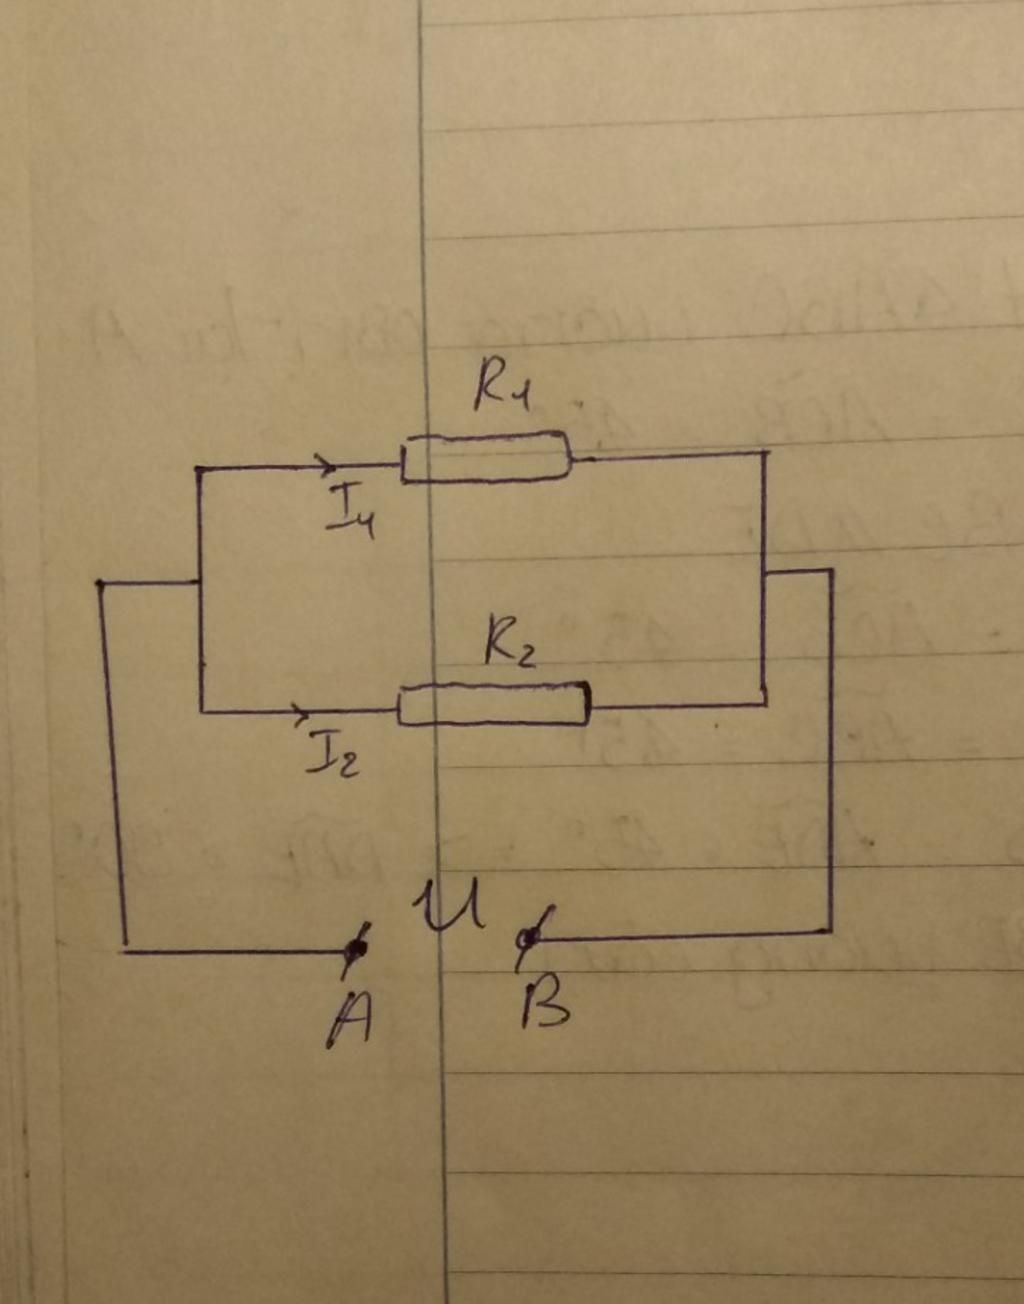 R1
I1
R2
I2
U
A B